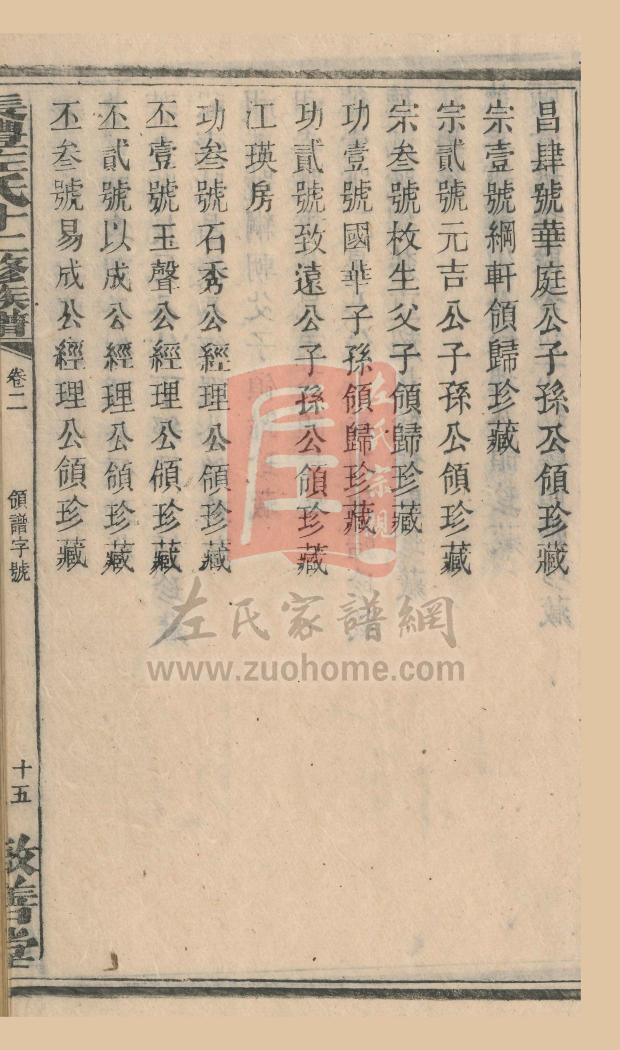 昌肆號華庭公子孫公領珍藏
宗壹號綱軒領歸珍藏
宗貳號元吉公子孫公領珍藏
宗叁號枚生父子領歸珍藏
功壹號國華子孫領歸珍藏
功貳號致遠公子孫公領珍藏
江瑛房
功叁號石秀公經理公領珍藏
丕壹號玉聲公經理公領珍藏
丕貳號以成公經理公領珍藏
丕叁號易成公經理公領珍藏
長澧左氏十二修族譜
卷二
領譜字號
十五
敦善堂
左氏宗親
左氏家譜網
www.zuohome.com